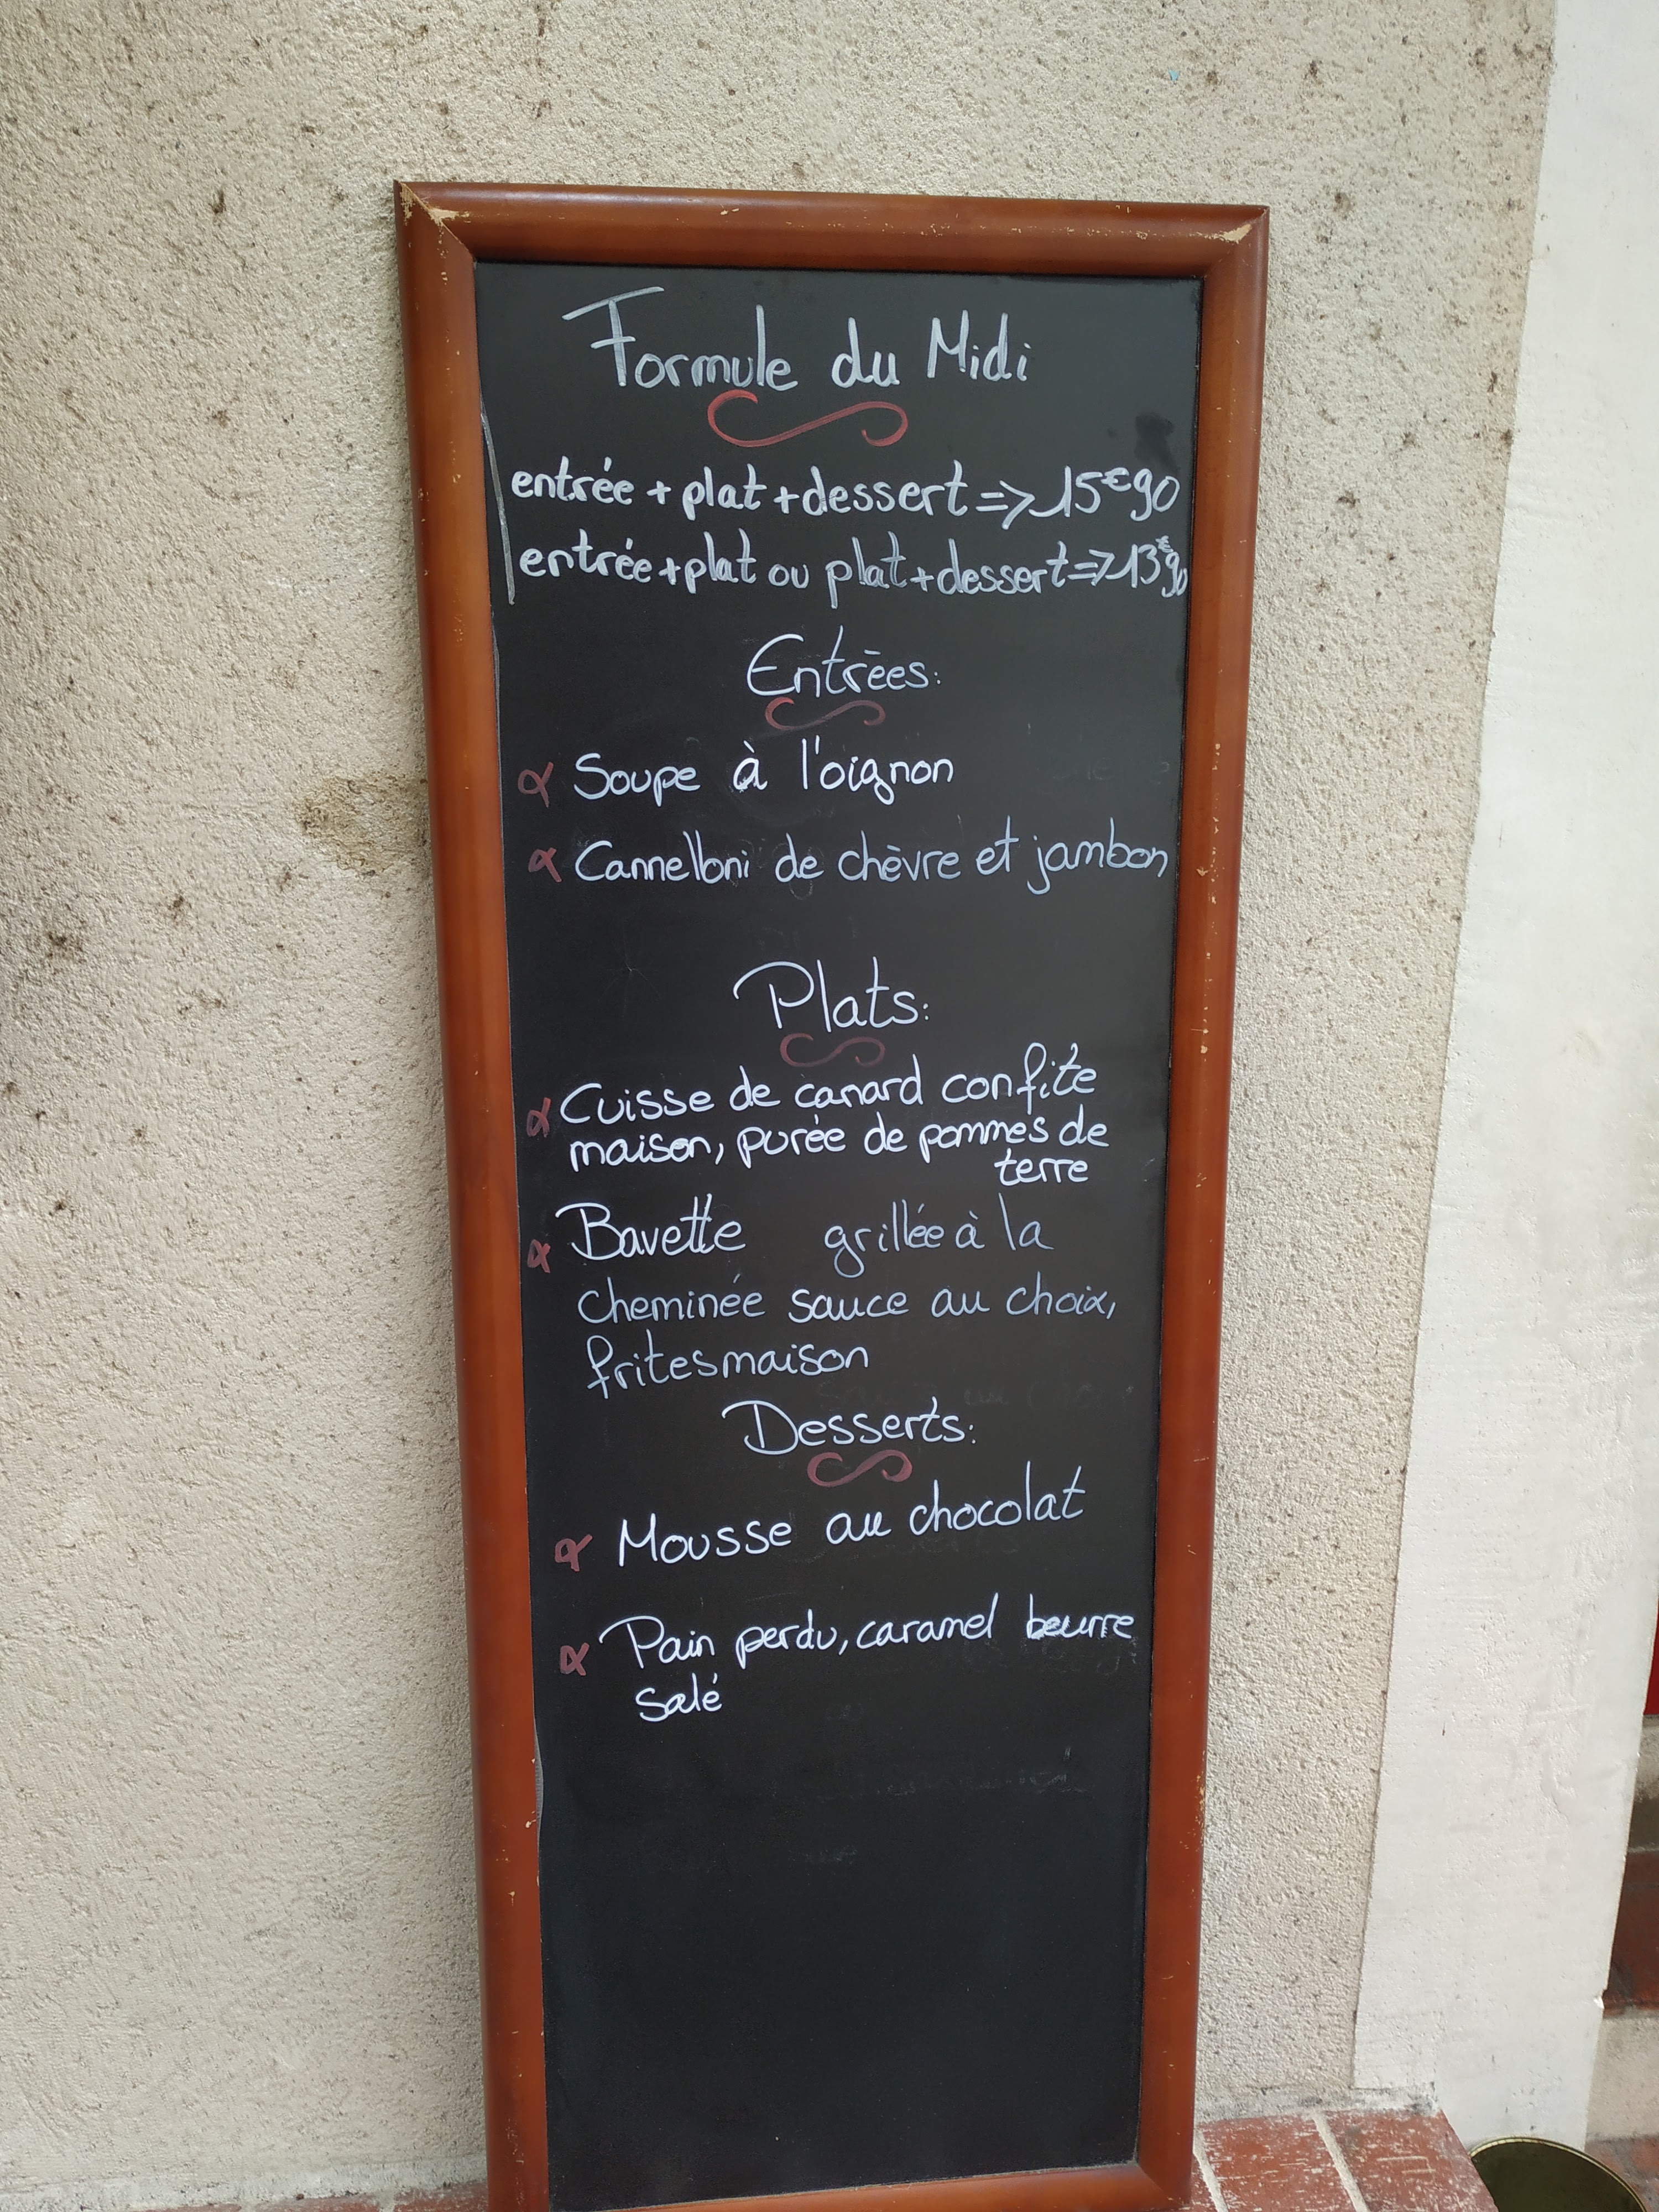 Formule du Midi
entrée + plat + dessert => 15€90
entrée + plat ou plat + dessert => 13€90
Entrées:
Soupe à l'oignon
Cannelloni de chèvre et jambon
Plats:
Cuisse de canard confite
maison, purée de pommes de
terre
Bavette grillée à la
cheminée sauce au choix,
frites maison
Desserts:
Mousse au chocolat
Pain perdu, caramel beurre
salé